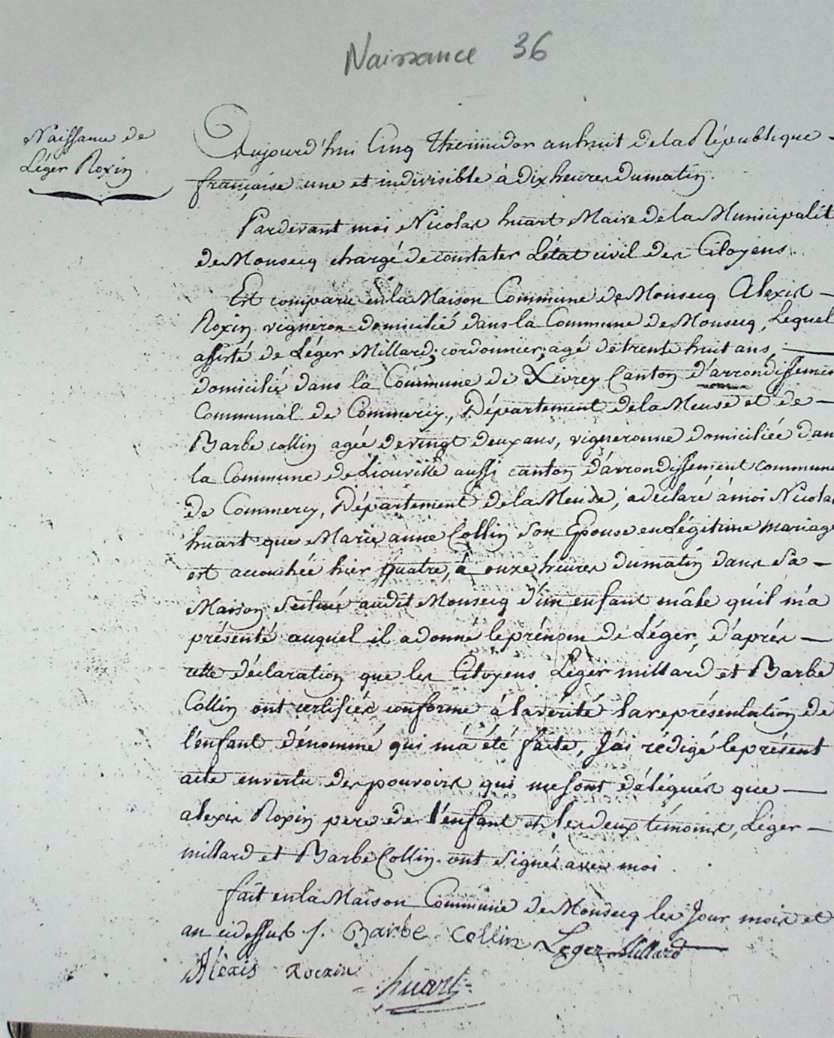 Naissance 36
Naissance de
Léger Roxin
Aujourd'hui Cinq thermidor an huit de la République
française une et indivisible à dix heures du matin.
Pardevant moi Nicolas huart Maire de la Municipalit
de Monsecq chargé de constater L'état civil des Citoyens.
Est comparu en la Maison Commune de Monsecq Alexis
Roxin vigneron domicilié dans la Commune de Monsecq, Lequel
assisté de Léger Millard, cordonnier, agé de trente huit ans,
domicilié dans la Commune de Xivrey Canton d'arrondissemen
Communal de Commercy, Département de la Meuse et de
Barbe collin agée de vingt deux ans, vigneronne domiciliée dan
la Commune de Liouville aussi canton d'arrondissement commun
de Commercy, Département de la Meuse, a déclaré à moi Nicolas
huart que Marie anne Collin Son Epouse en Légitime mariag
est accouchée hier quatre, à onze heures du matin dans Sa
Maison Scitué audit Monsecq d'un enfant mâle qu'il m'a
présenté auquel il a donné le prénom de Léger, d'après
cette déclaration que les Citoyens Léger millard et Barbe
Collin ont certifiés conforme à la vérité la représentation de
l'enfant dénommé qui m'a été faite, J'ai rédigé le présent
acte en vertu des pouvoirs qui me sont délégués que
alexis Roxin pere de l'enfant et les deux témoins, Léger
millard et Barbe Collin ont Signés avec moi.
fait en la Maison Commune de Monsecq les Jour mois et
an cidessus /. Barbe Collin Leger Millard
Alexis rocxin huart